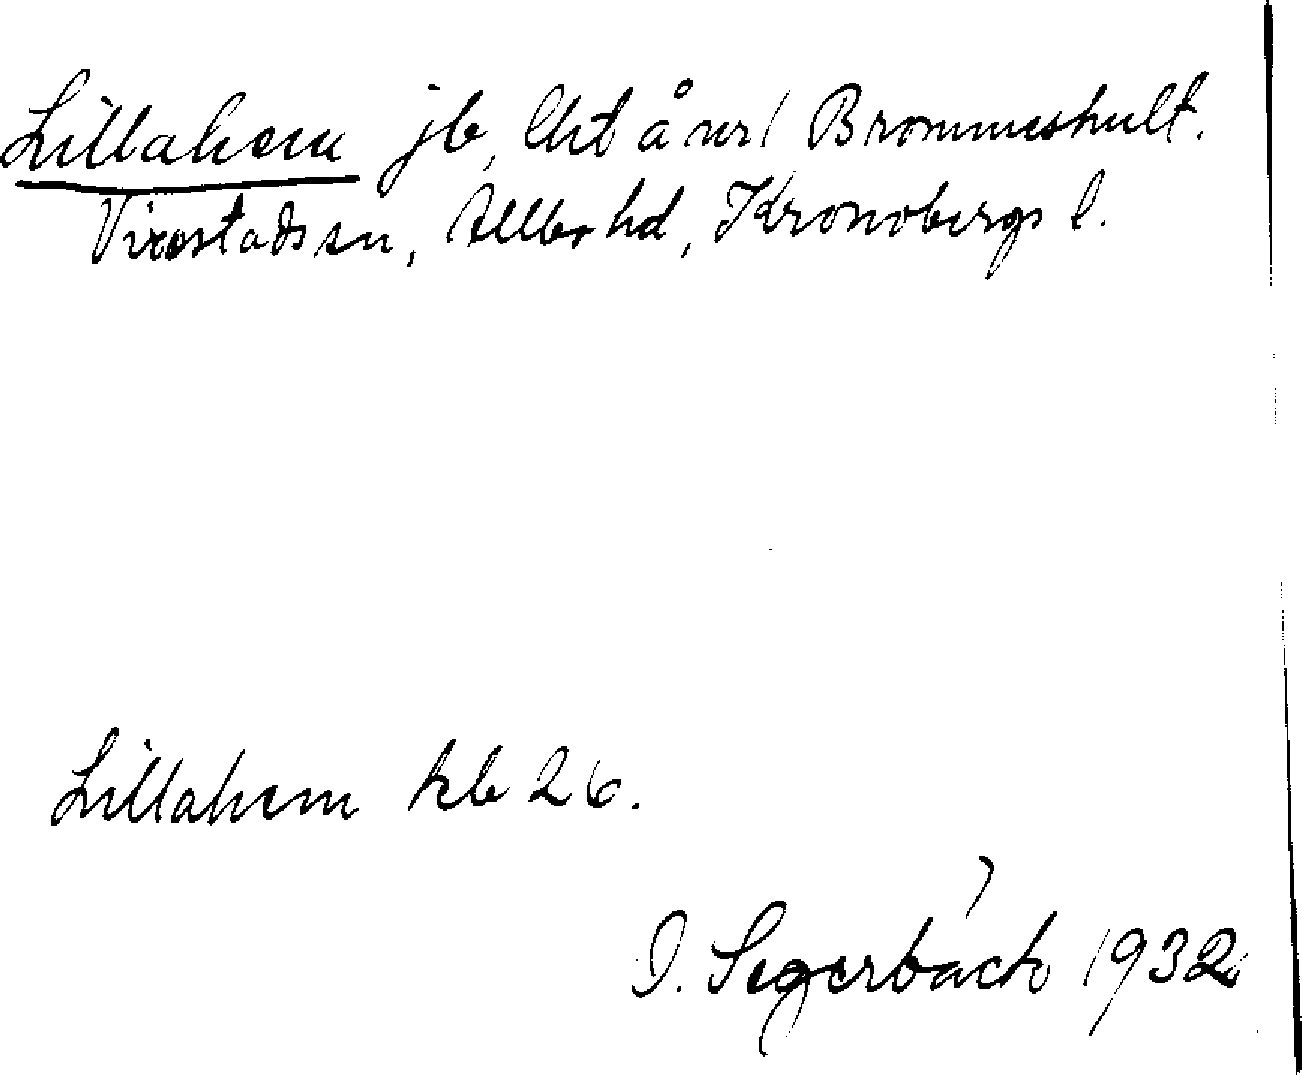 Lillahem jb, lht å nr 1 Brommeshult.
Virestads sn, Allbo hd, Kronobergs l.
Lillahem kb 26.
I. Segerbäck 1932